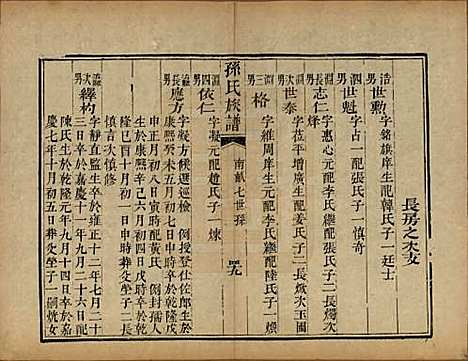 長房之次支
浩男 世勲 字銘旗庠生配韓氏子一廷士
泗男 世魁 字占一配張氏子一慎奇
淵長男 志仁 字惠心元配李氏繼配張氏子二長燭次
烽
次男 世泰 字茈平增廣生配姜氏子二長燉次玉園
淵三男 格 字維周庠生元配李氏繼配陸氏子一燦
淵四男 依仁 字凝元配趙氏子一煉
孫氏族譜
南貳七世孫
長男 應方 字凝方候選巡檢 例授登仕佐郎生於
康熙癸未五月初七日申時卒於乾隆戊
申正月初八日寅時配黃氏 例封孺人
生於康熙辛巳六月初四日戌時卒於乾
隆己酉十月初一日申時葬火壘子二長
慎言次慎修
次男 繹構 字靜直監生卒於雍正十二年七月二十
三日卒於嘉慶十一年九月二十六日配
陳氏生於乾隆元年九月十四日卒於嘉
慶七年十月初五日葬火壘子一嗣姚女